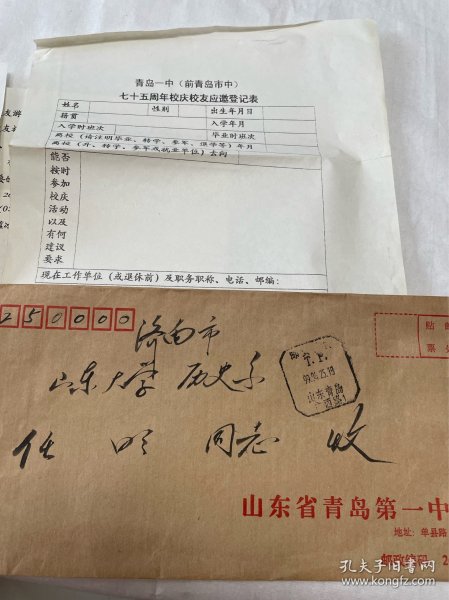 青岛一中（前青岛市中）
七十五周年校庆校友应邀登记表
姓名
性别
出生年月日
籍贯
入学年月
入学时班次
毕业时班次
离校（请注明毕业、转学、参军、退学等）年月
离校（升、转学、参军或就业单位）去向
能否
按时
参加
校庆
活动
以及
有何
建议
要求
现在工作单位（或退休前）及职务职称、电话、邮编：
250000
济南市
山东大学 历史系
任 同志 收
山东青岛
贴
山东省青岛第一中
地址：单县路
邮政编码：2
孔夫子旧书网
www.kongfz.com